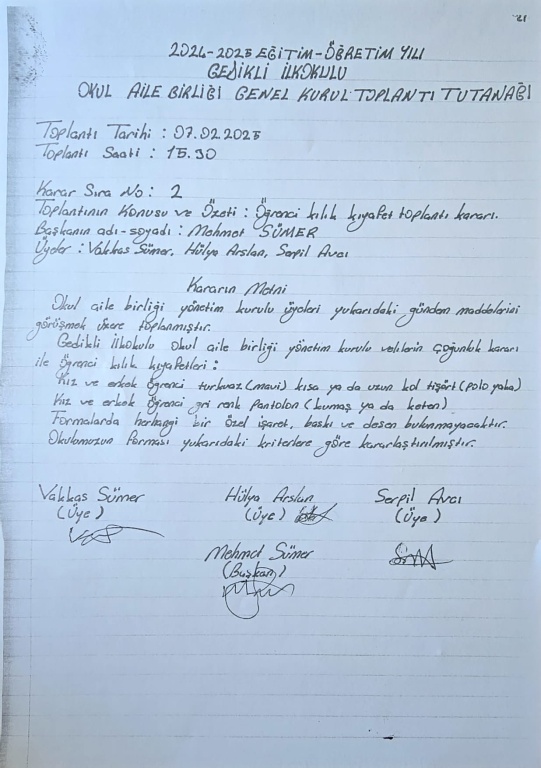 21
2024-2025 EĞİTİM-ÖĞRETİM YILI
GEDİKLİ İLKOKULU
OKUL AİLE BİRLİĞİ GENEL KURUL TOPLANTI TUTANAĞI
Toplantı Tarihi : 07.02.2025
Toplantı Saati : 15.30
Karar Sıra No : 2
Toplantının Konusu ve Özeti : Öğrenci kılık kıyafet toplantı kararı.
Başkanın adı-soyadı : Mehmet SÜMER
Üyeler : Vakkas Sümer, Hülya Arslan, Serpil Avcı
Kararın Metni
Okul aile birliği yönetim kurulu üyeleri yukarıdaki gündem maddelerini
görüşmek üzere toplanmıştır.
Gedikli İlkokulu Okul aile birliği yönetim kurulu velilerin çoğunluk kararı
ile öğrenci kılık kıyafetleri :
Kız ve erkek öğrenci turkuaz (mavi) kısa ya da uzun kol tişört (polo yaka)
Kız ve erkek, öğrenci gri renk pantolon (kumaş ya da keten)
Formalarda herhangi bir özel işaret, baskı ve desen bulunmayacaktır.
Okulumuzun forması yukarıdaki kriterlere göre kararlaştırılmıştır.
Vakkas Sümer Hülya Arslan Serpil Avcı
(Üye) (Üye) (Üye)
Mehmet Sümer
(Başkan)